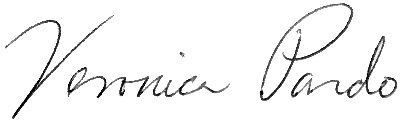 Veronica Pardo